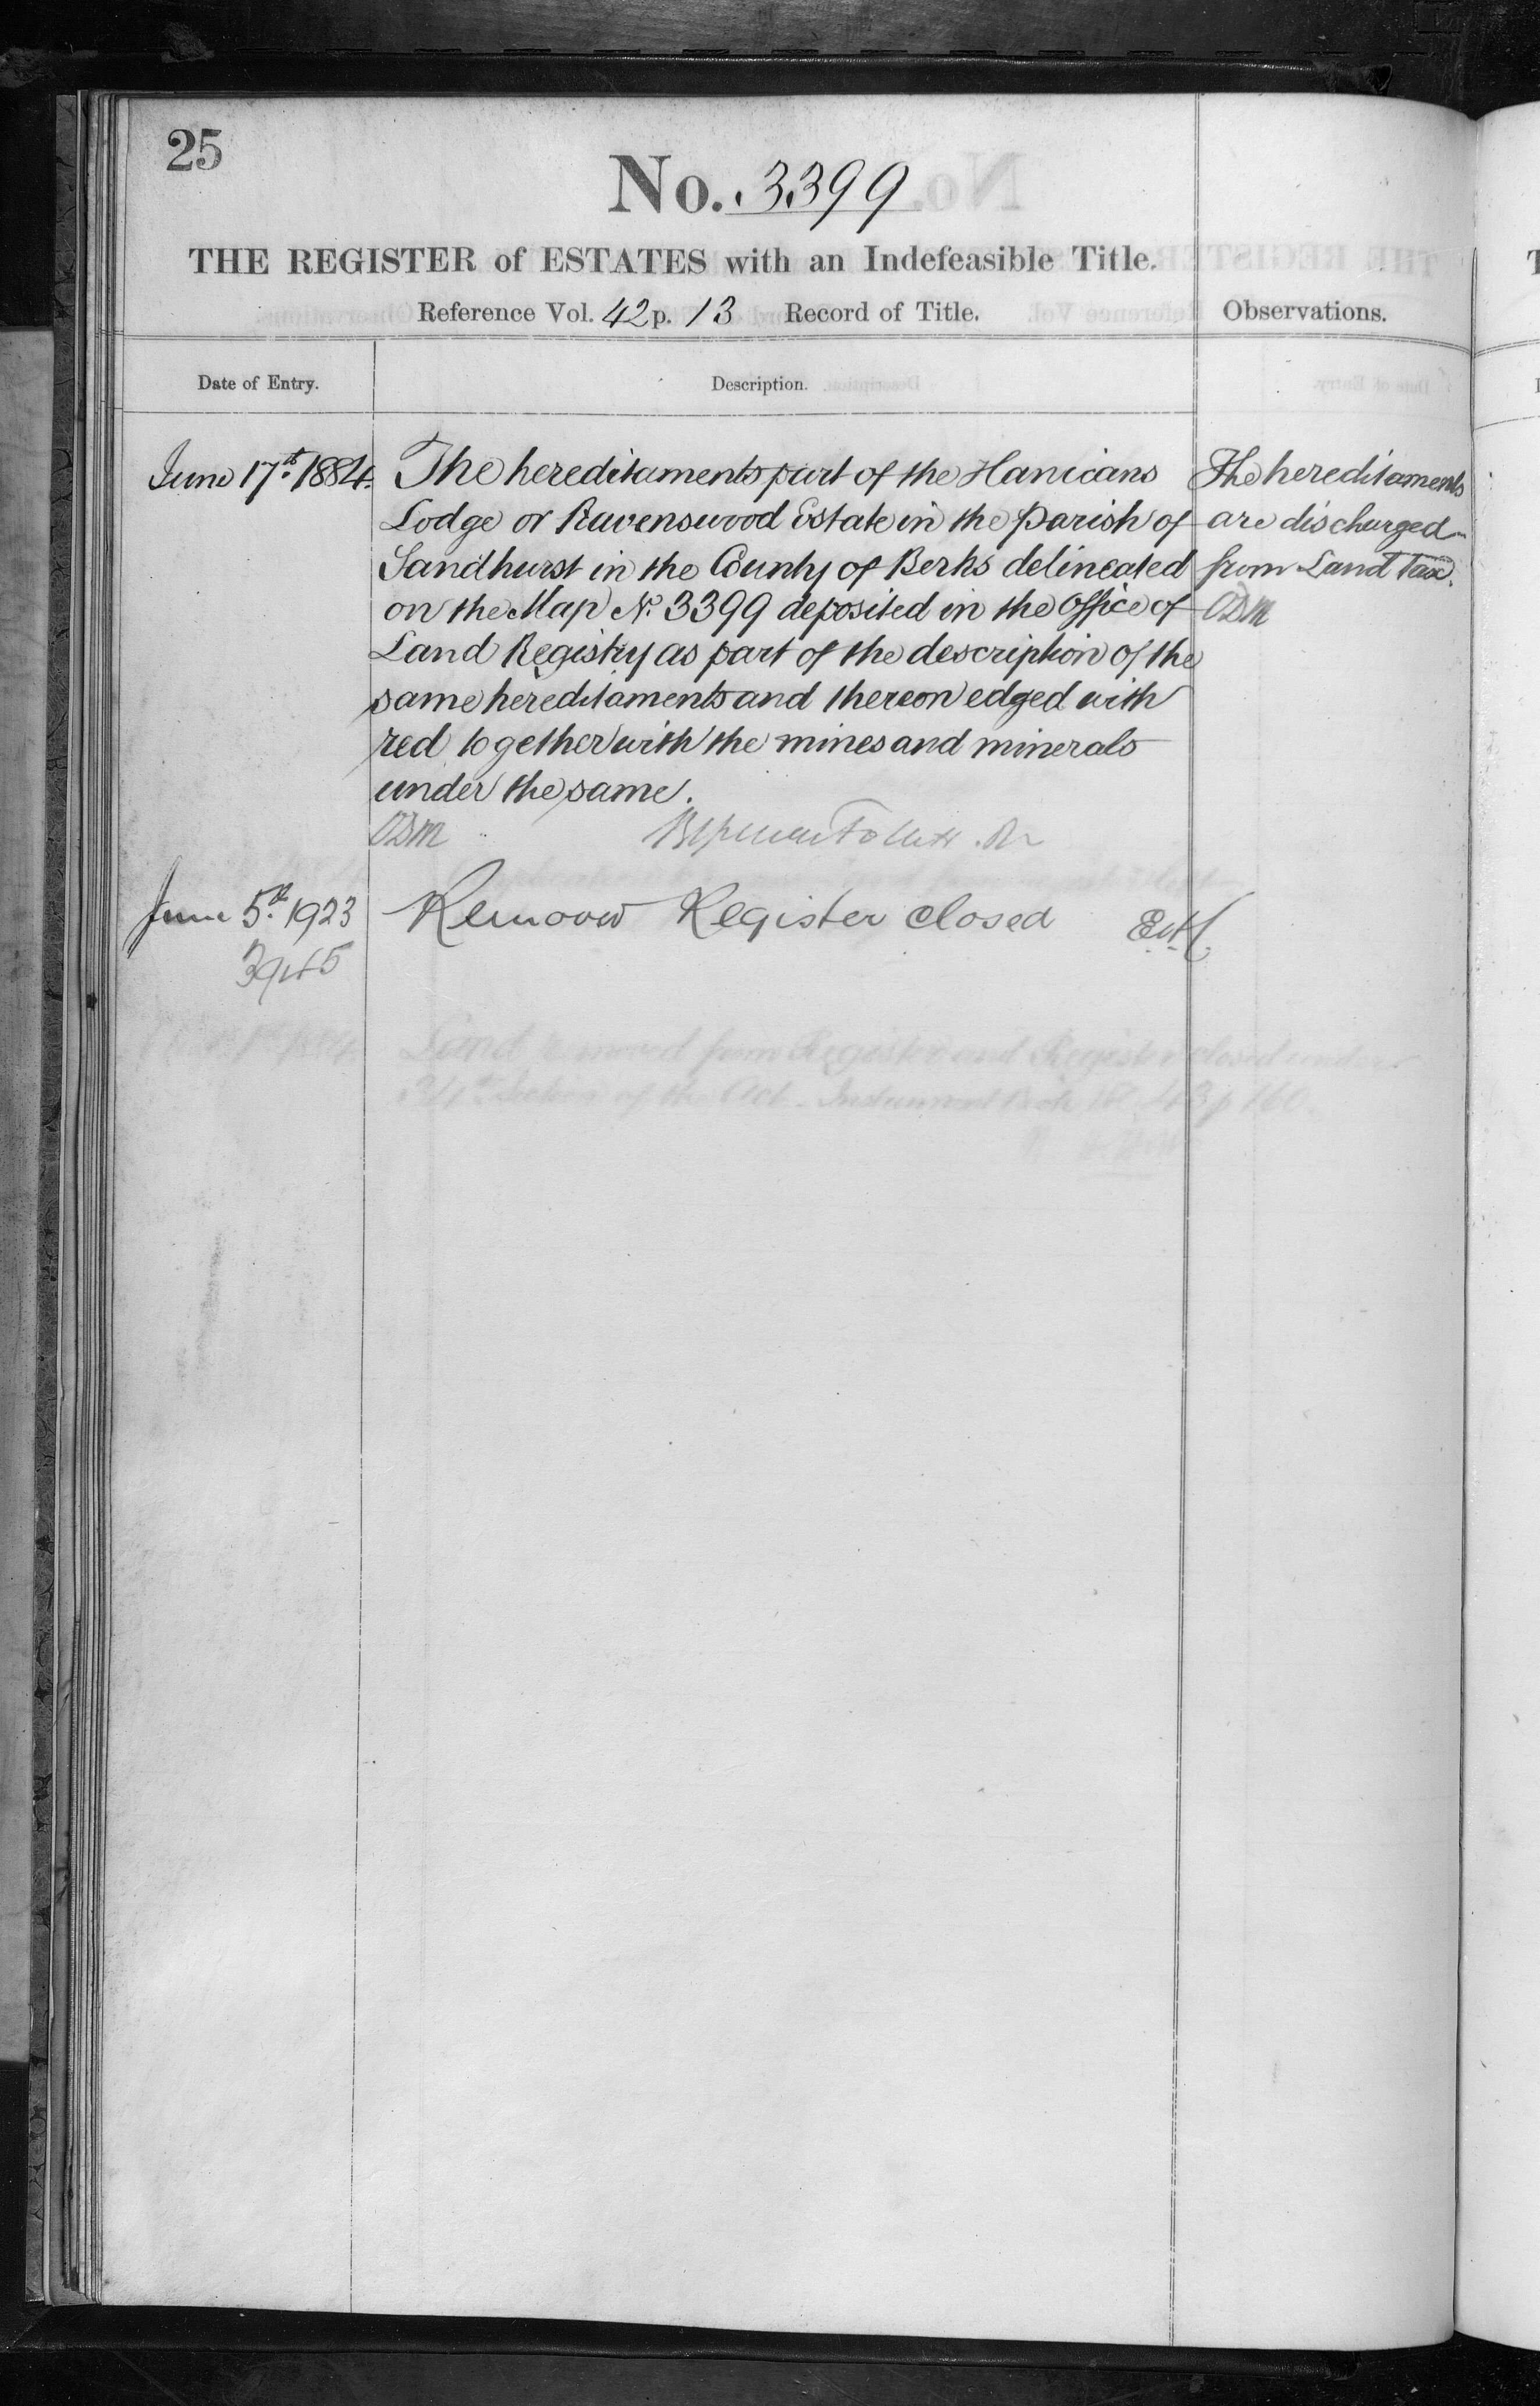 25
No. 3399
THE REGISTER of ESTATES with an Indefeasible Title.
Reference Vol. 42 p. 13 Record of Title.
Observations.
Date of Entry.
Description.
June 17th 1884.
The hereditaments part of the Hanicans
Lodge or Ravenswood Estate in the Parish of
Sandhurst in the County of Berks delineated
on the Map No. 3399 deposited in the Office of
Land Registry as part of the description of the
same hereditaments and thereon edged with
red together with the mines and minerals
under the same.
The hereditaments
are discharged
from Land Tax.
June 5th 1923
Removed Register closed
Land removed from Register and Register closed under
34th Section of the Act. Instrument Book Vol 43 p 160.